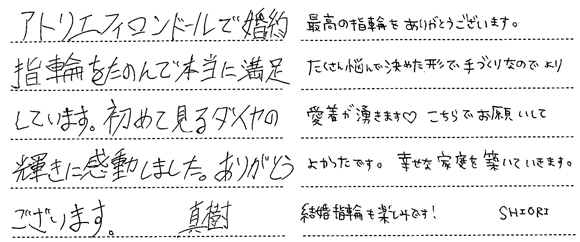 アトリエフィロンドールで婚約
指輪をたのんで本当に満足
しています。初めて見るダイヤの
輝きに感動しました。ありがとう
ございます。 真樹
最高の指輪をありがとうございます。
たくさん悩んで決めた形で手づくりなのでより
愛着が湧きます♡ こちらでお願いして
よかったです。幸せな家庭を築いていきます。
結婚指輪も楽しみです! SHIORI